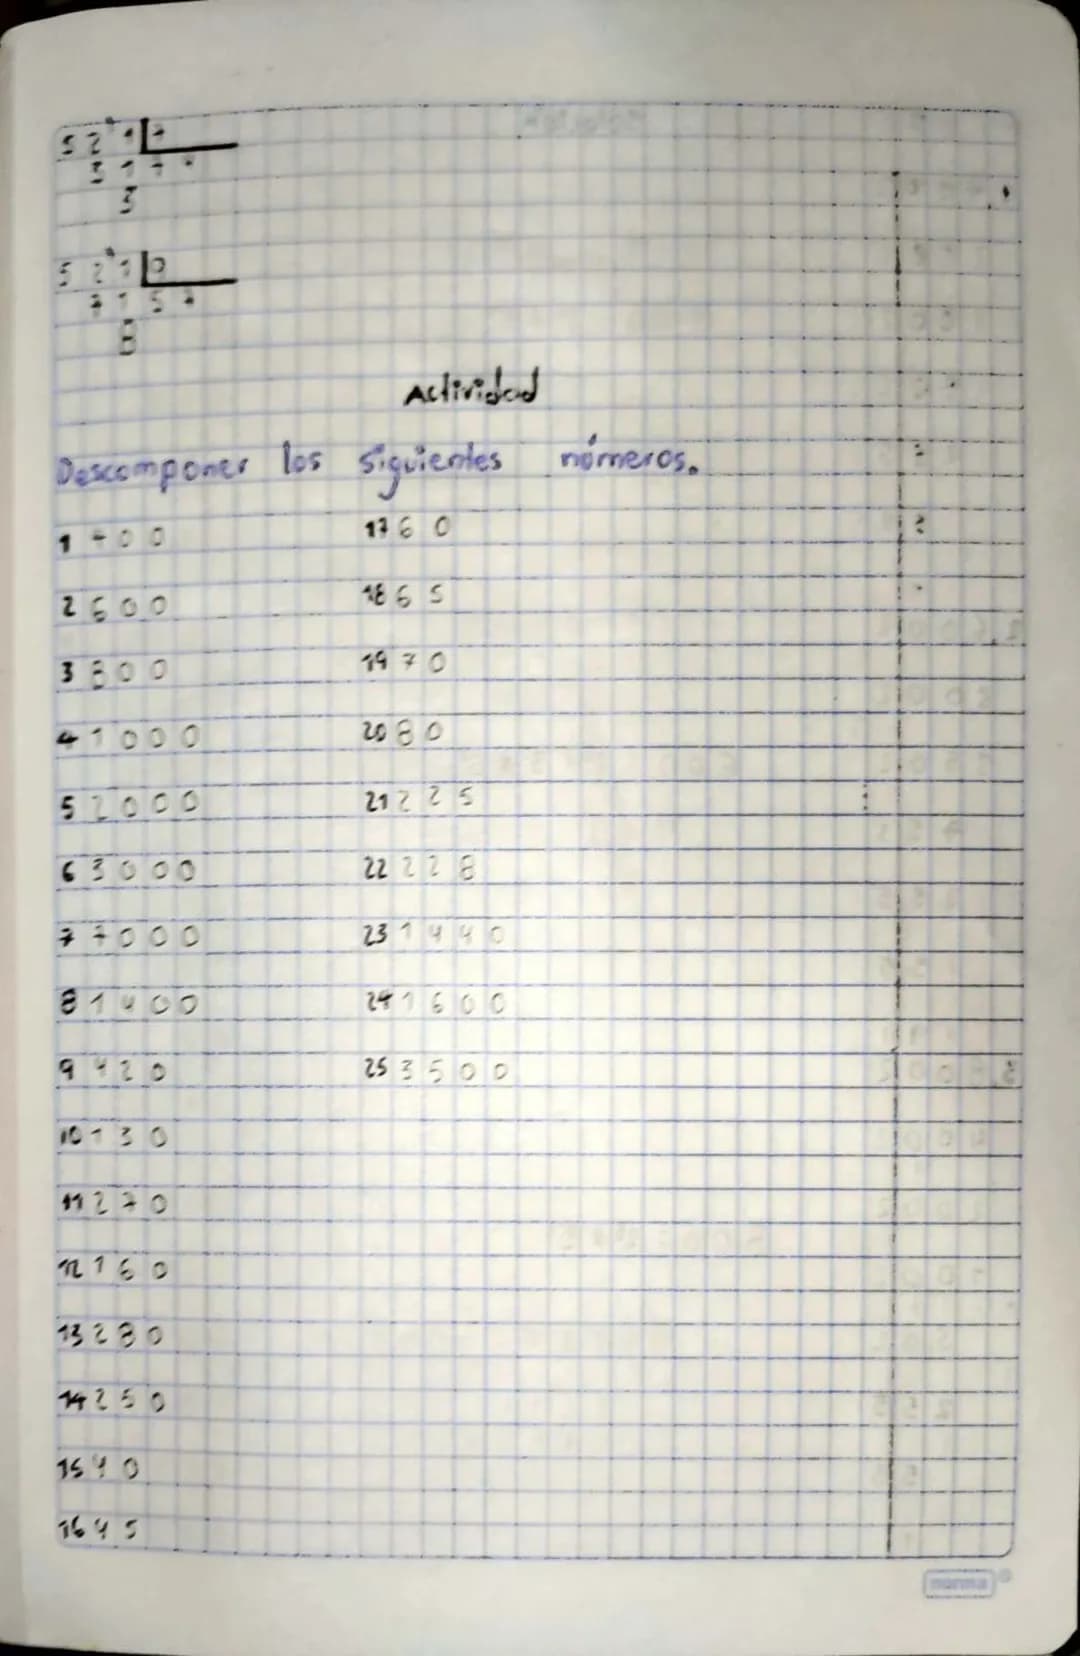 5 2 1 7
3 1 7
3
5 2 1
7 1 5 7
8
Actividad
Descomponer los siguientes números.
1 700
2 600
3 800
4 1000
5 2000
6 3000
7 7000
8 1400
9 420
10 130
11 270
12 160
13 280
14 250
15 40
16 45
17 60
18 65
19 70
20 80
21 225
22 228
23 1440
24 1600
25 3500
norma